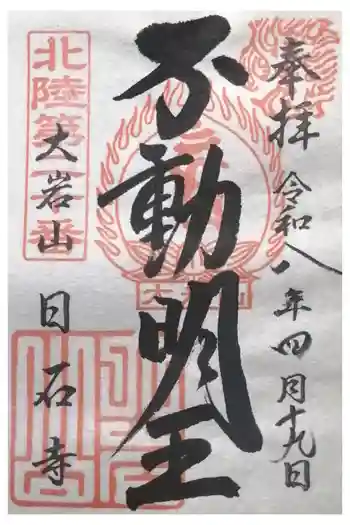 奉拝 令和八年四月十九日
不動明王
北陸第一番
大岩山
大岩山 日石寺